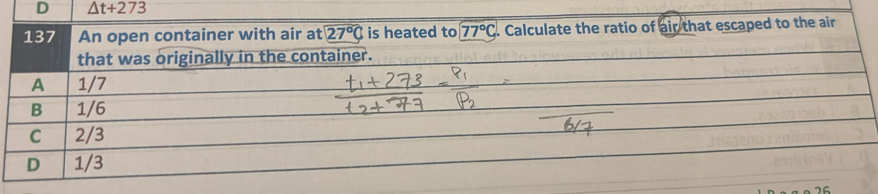 D Δt+273
137 An open container with air at 27°C is heated to 77°C. Calculate the ratio of air that escaped to the air
that was originally in the container.
A 1/7
t₁+273 = P₁ =
B 1/6
t₂+ 77 P₂
6/7
C 2/3
D 1/3
26